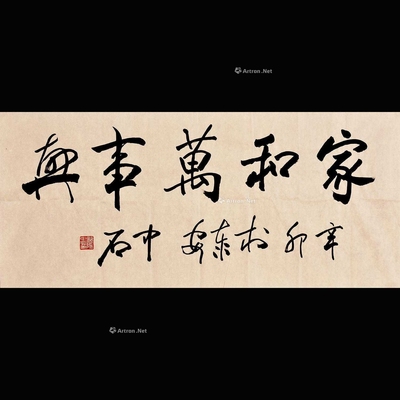 Artron.Net
家和萬事興
辛卯 中石
Artron.Net